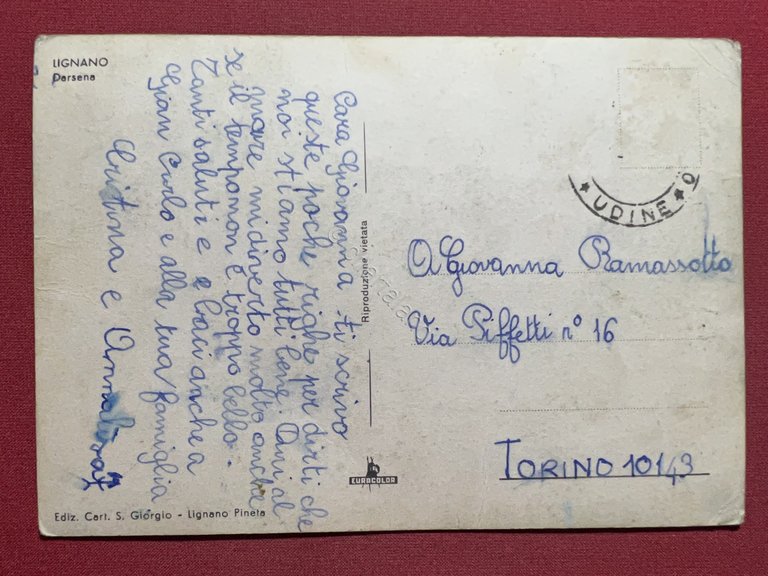 LIGNANO
Darsena
Cara Giovanna ti scrivo
queste poche righe per dirti che
noi stiamo tutti bene. Qui al
mare mi diverto molto anche
se il tempo non è troppo bello.
Tanti saluti e baci anche a
Gian Carlo e alla tua famiglia
Cristina e
Riproduzione vietata
UDINE
A Giovanna Ramassotto
Via Piffetti n° 16
TORINO 10143
EUROCOLOR
Ediz. Cart. S. Giorgio - Lignano Pineta